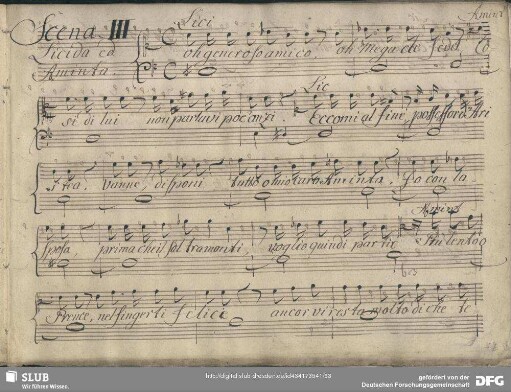 Scena III Lici Amint
Licida ed oh generoso amico oh Megacle fedel Co
Aminta.
Lic
si di lui non parlavi poc'anzi. Eccomi al fine, possessor d'Ari
stea. Vanne, disponi tutto o mio caro Aminta. Io con la
Amint
sposa, prima che il sol tramonti, voglio quindi partir. Più lento o
Prence, nel fingerti felice ancor vi resta molto di che te
SLUB
Wir führen Wissen.
gefördert von der
Deutschen Forschungsgemeinschaft
DFG